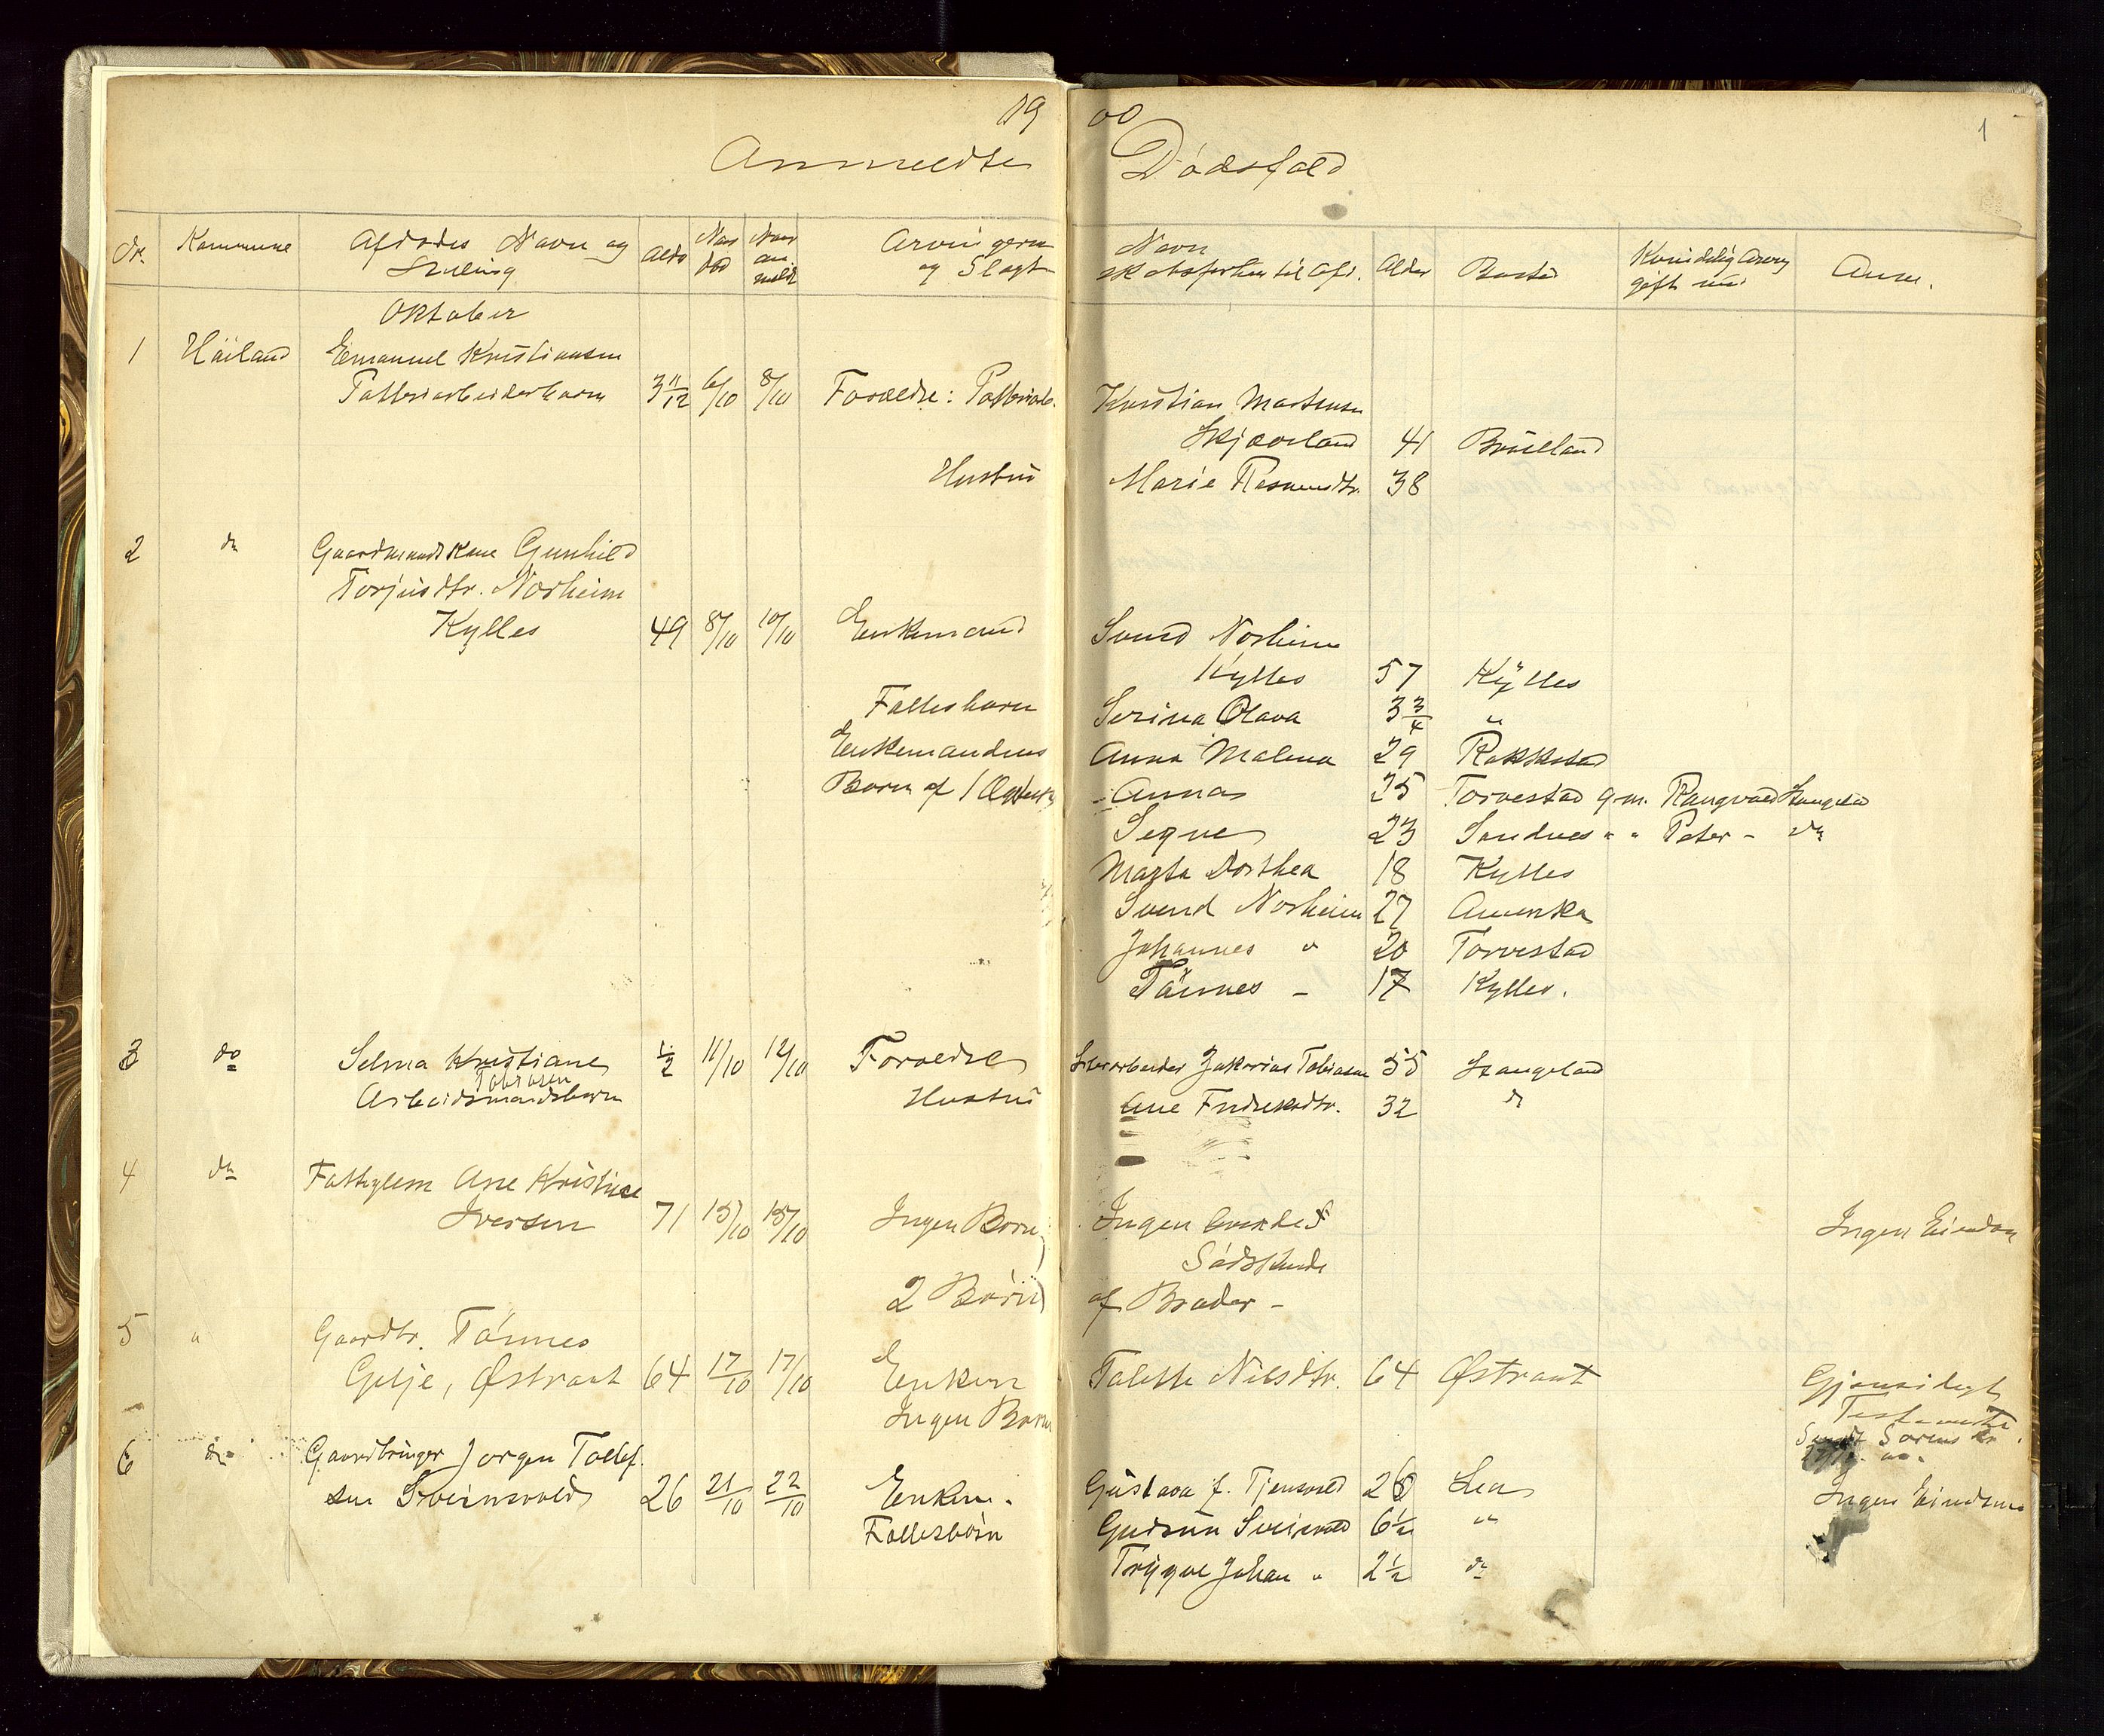 19 00
1
Anmeldte Dødsfald
No. Kommune Afdødes Navn og Stilling Alder Naar død Naar anmeldt Arvingerne og Slægt
Navn Slægtsforhold til Afd. Alder Bosted Kvindelig Arving gift med Anm.
Oktober
1 Høiland Emanuel Kristiansen
Potteriarbeiderbarn 3 11/12 6/10 8/10 Forældre: Potteriarb. Kristian Mortensen
Skjæveland 41 Brueland
Hustru Marie Rasmusdtr. 38
2 do Gaardmandskone Gunhild
Torjusdtr. Norheim
Kylles 49 8/10 10/10 Enkemand Svend Norheim
Kylles 57 Kylles
Fællesbarn Serina Olava 3 3/4 "
Enkemandens Anna Malena 29 Rokkstad
Børn af 1 Ægtesk. Anna 25 Torvestad g.m. Rangvald Stangeland
Signe 23 Sandnes " " Peter - do
Marta Dorthea 18 Kylles
Svend Norheim 27 Amerika
Johannes " 20 Torvestad
Tönnes - 17 Kylles.
3 do Selma Kristiane 1/2 11/10 12/10 Forældre Jakorias Tobiasen 55 Stangeland
Tobiasen
Arbeidsmandsbarn Hustru Ane Fredriksdtr. 32 do
4 do Fattiglem Ane Kristine
Iversen 71 15/10 15/10 Ingen Børn, Ingen Ingen Eiendom
Sødskende
2 Børn af Broder -
5 " Gaardbr. Tönnes
Gilje, Østraat 64 17/10 17/10 Enken Talette Nilsdtr. 64 Østraat Gjensidigt
Ingen Børn Testamente
Sendt Sorenskr.
6 do Gaardbruger Jørgen Tollef-
sen Sveinsvold 26 21/10 22/10 Enken. Gustava f. Tjensvold 26 Lea Ingen Eiendom
Fællesbørn Gudrun Sveinsvold 6 1/2 "
Trygve Johan " 2 1/2 do